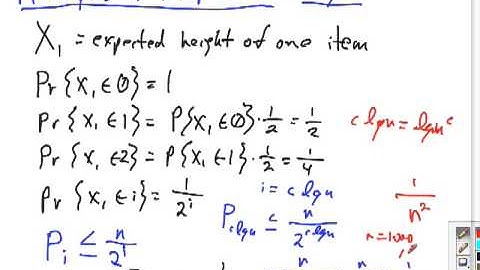 X₁ = expected height of one item
Pr{X₁ ∈ 0} = 1
Pr{X₁ ∈ 1} = P{X₁ ∈ 0} · 1/2 = 1/2
c lg n = lg n^c
Pr{X₁ ∈ 2} = P{X₁ ∈ 1} · 1/2 = 1/4
Pr{X₁ ∈ i} = 1/2^i
i = c lg n
1/n²
P_i ≤ n/2^i
P_{c lg n} ≤ n/2^{c lg n}
n = 1000